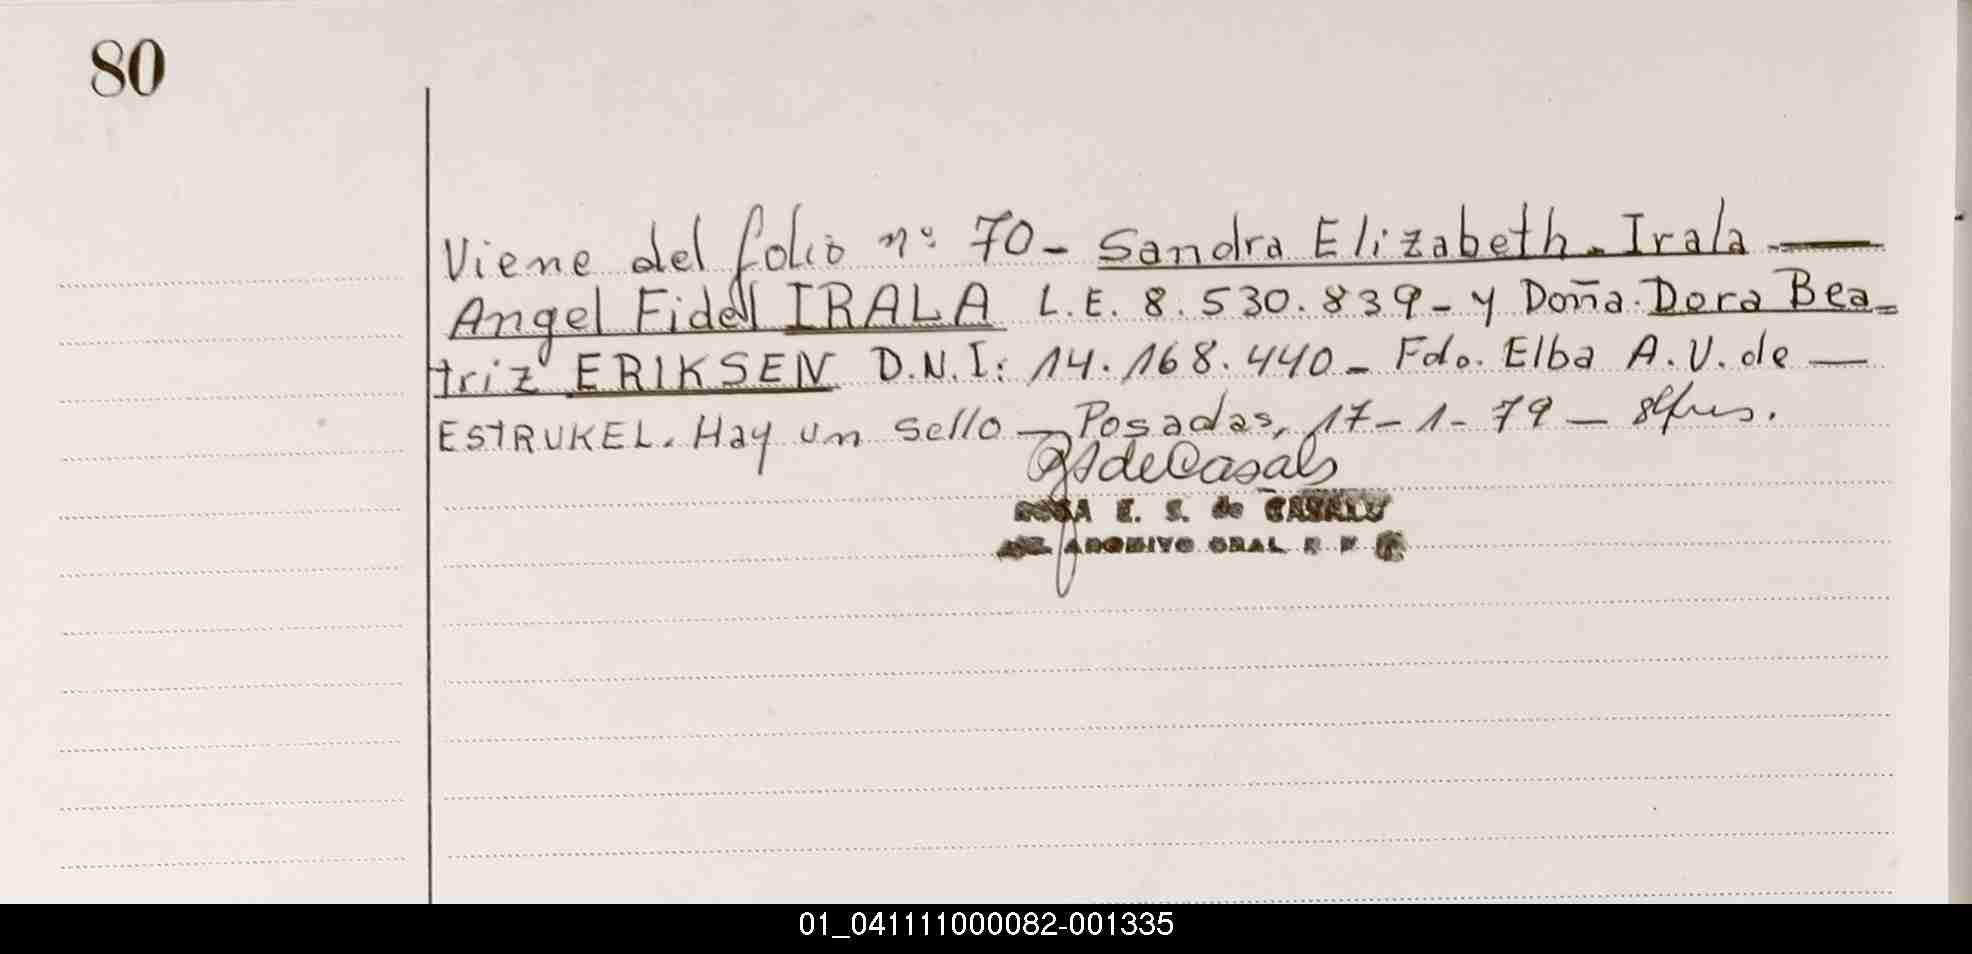 80
Viene del folio nº 70- Sandra Elizabeth. Irala —
Angel Fidel IRALA L.E. 8.530.839- y Doña. Dora Bea-
triz ERIKSEN D.N.I: 14.168.440- Fdo. Elba A. V. de —
ESTRUKEL. Hay un sello — Posadas, 17-1-79 —
de Casals
ROSA E. S. de CASALS
ARCHIVO GRAL R P
01_041111000082-001335